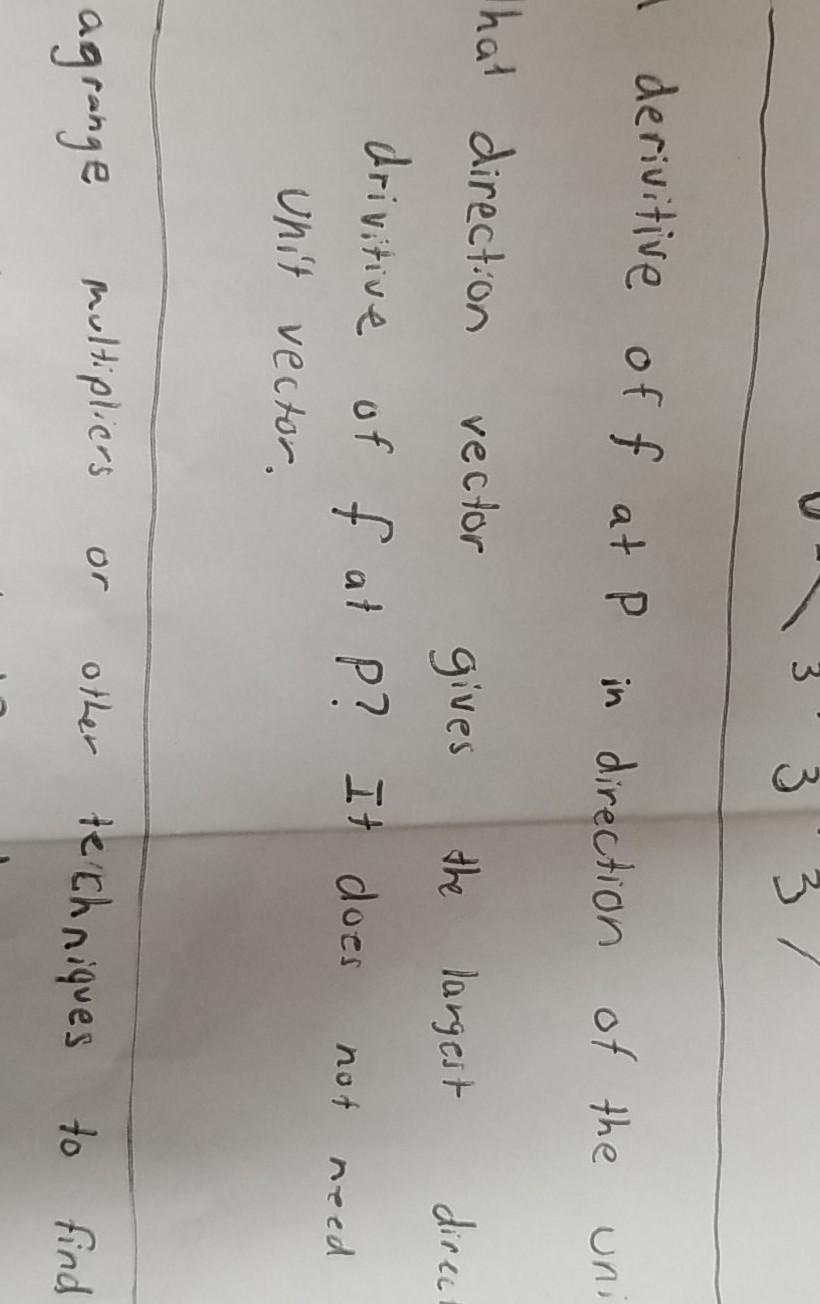 3 3 3
derivitive of f at P in direction of the
direction vector gives the largest
drivitive of f at P? It does not need
Unit vector.
multipliers or other techniques to find